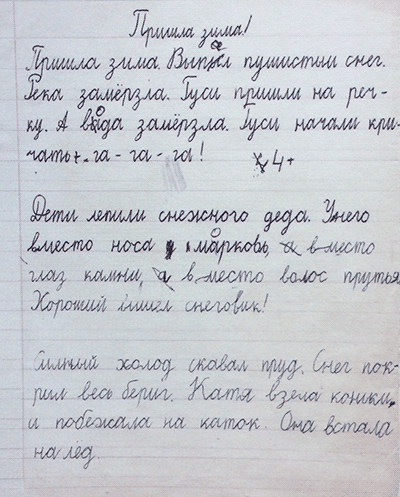 Пришла зима!
Пришла зима. Выпал пушистыи снег.
Река замёрзла. Гуси пришли на реч-
ку. А вода замёрзла. Гуси начали кри-
чать:- га - га - га! 4+
Дети лепили снежного деда. Унего
вместо носа марковь, а вместо
глаз камни, а вместо волос прутья
Хороший вышел снеговик!
Силный холод сковал пруд. Снег пок-
рил весь бериг. Катя взела коники,
и побежала на каток. Она встала
на лёд.